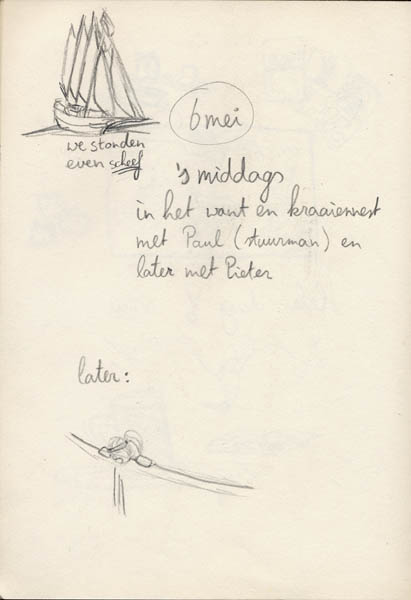 we stonden
even scheef
6 mei
's middags
in het want en kraaiennest
met Paul (stuurman) en
later met Pieter
later: